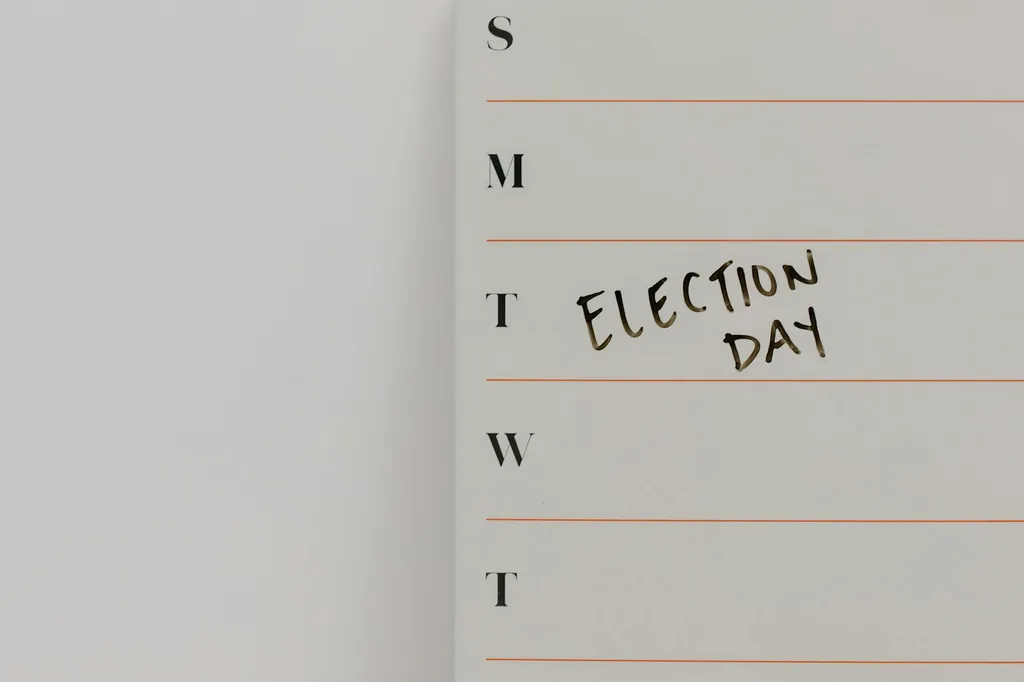 S
M
T ELECTION
DAY
W
T